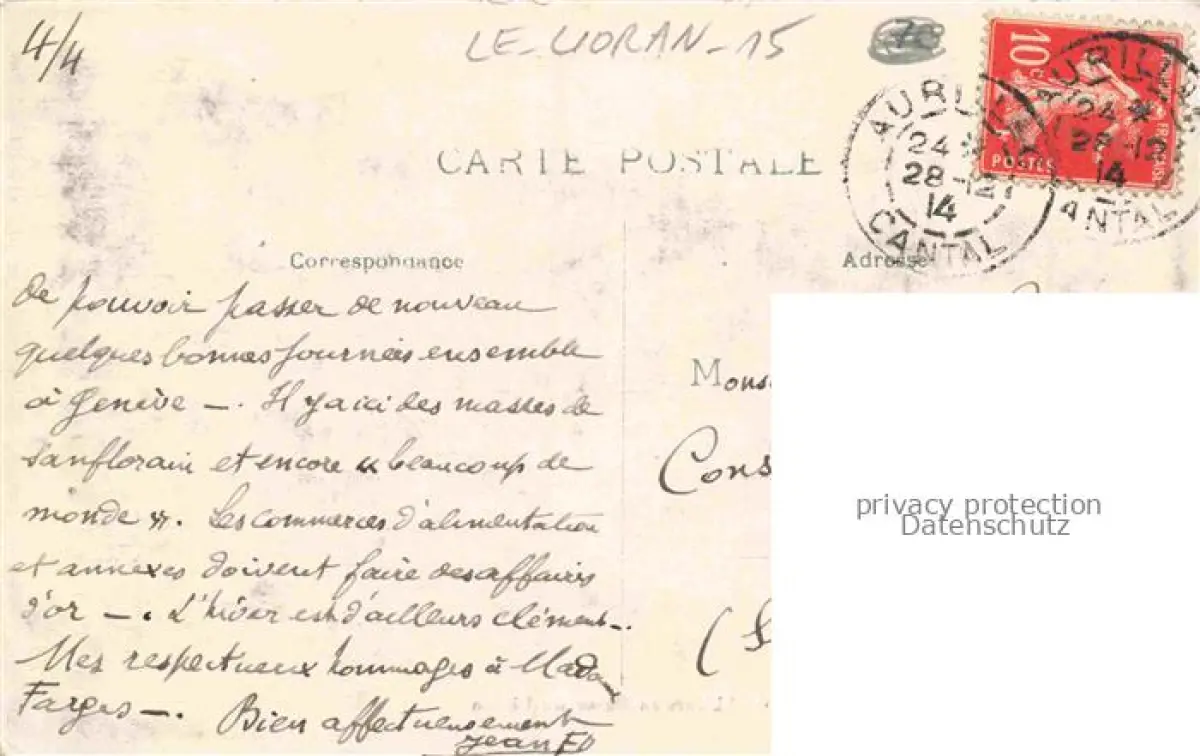 4/4
LE-LIORAN-15
10c
POSTES
AURILLAC
24 *
28-12
14
CANTAL
AURILLAC
24 *
28-12
14
CANTAL
CARTE POSTALE
Correspondance
Adresse
de pouvoir passer de nouveau
quelques bonnes journées ensemble
à Genève —. Il y a ici des masses de
sanflorain et encore « beaucoup de
monde ». Les commerces d'alimentation
et annexes doivent faire des affaires
d'or —. L'hiver est d'ailleurs clément —.
Mes respectueux hommages à Mada
Farges —. Bien affectueusement
Jean
Mons
Cons
privacy protection
Datenschutz